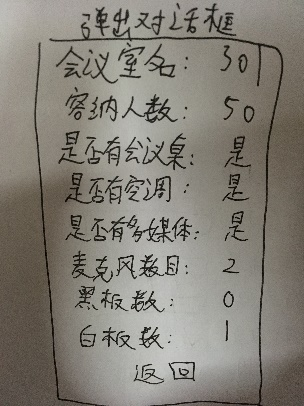 弹出对话框
会议室名: 301
容纳人数: 50
是否有会议桌: 是
是否有空调: 是
是否有多媒体: 是
麦克风数目: 2
黑板数: 0
白板数: 1
返回